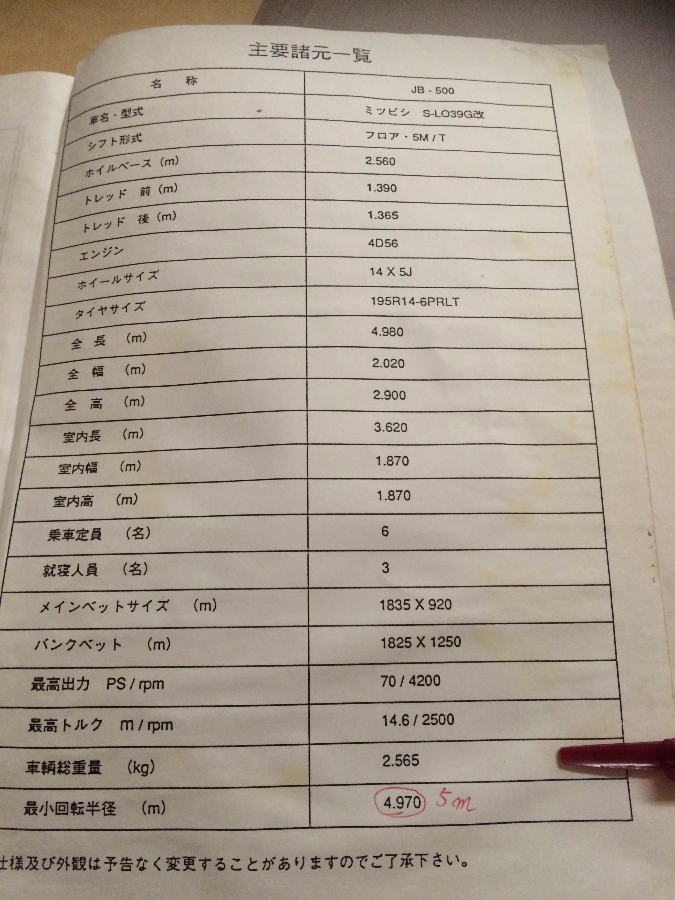 主要諸元一覧
名 称 JB-500
車名・型式 ミツビシ S-LO39G改
シフト形式 フロア・5M/T
ホイルベース (m) 2.560
トレッド 前 (m) 1.390
トレッド 後 (m) 1.365
エンジン 4D56
ホイールサイズ 14 X 5J
タイヤサイズ 195R14-6PRLT
全 長 (m) 4.980
全 幅 (m) 2.020
全 高 (m) 2.900
室内長 (m) 3.620
室内幅 (m) 1.870
室内高 (m) 1.870
乗車定員 (名) 6
就寝人員 (名) 3
メインベットサイズ (m) 1835 X 920
バンクベット (m) 1825 X 1250
最高出力 PS/rpm 70/4200
最高トルク m/rpm 14.6/2500
車輌総重量 (kg) 2.565
最小回転半径 (m) 4.970 5m
仕様及び外観は予告なく変更することがありますのでご了承下さい。